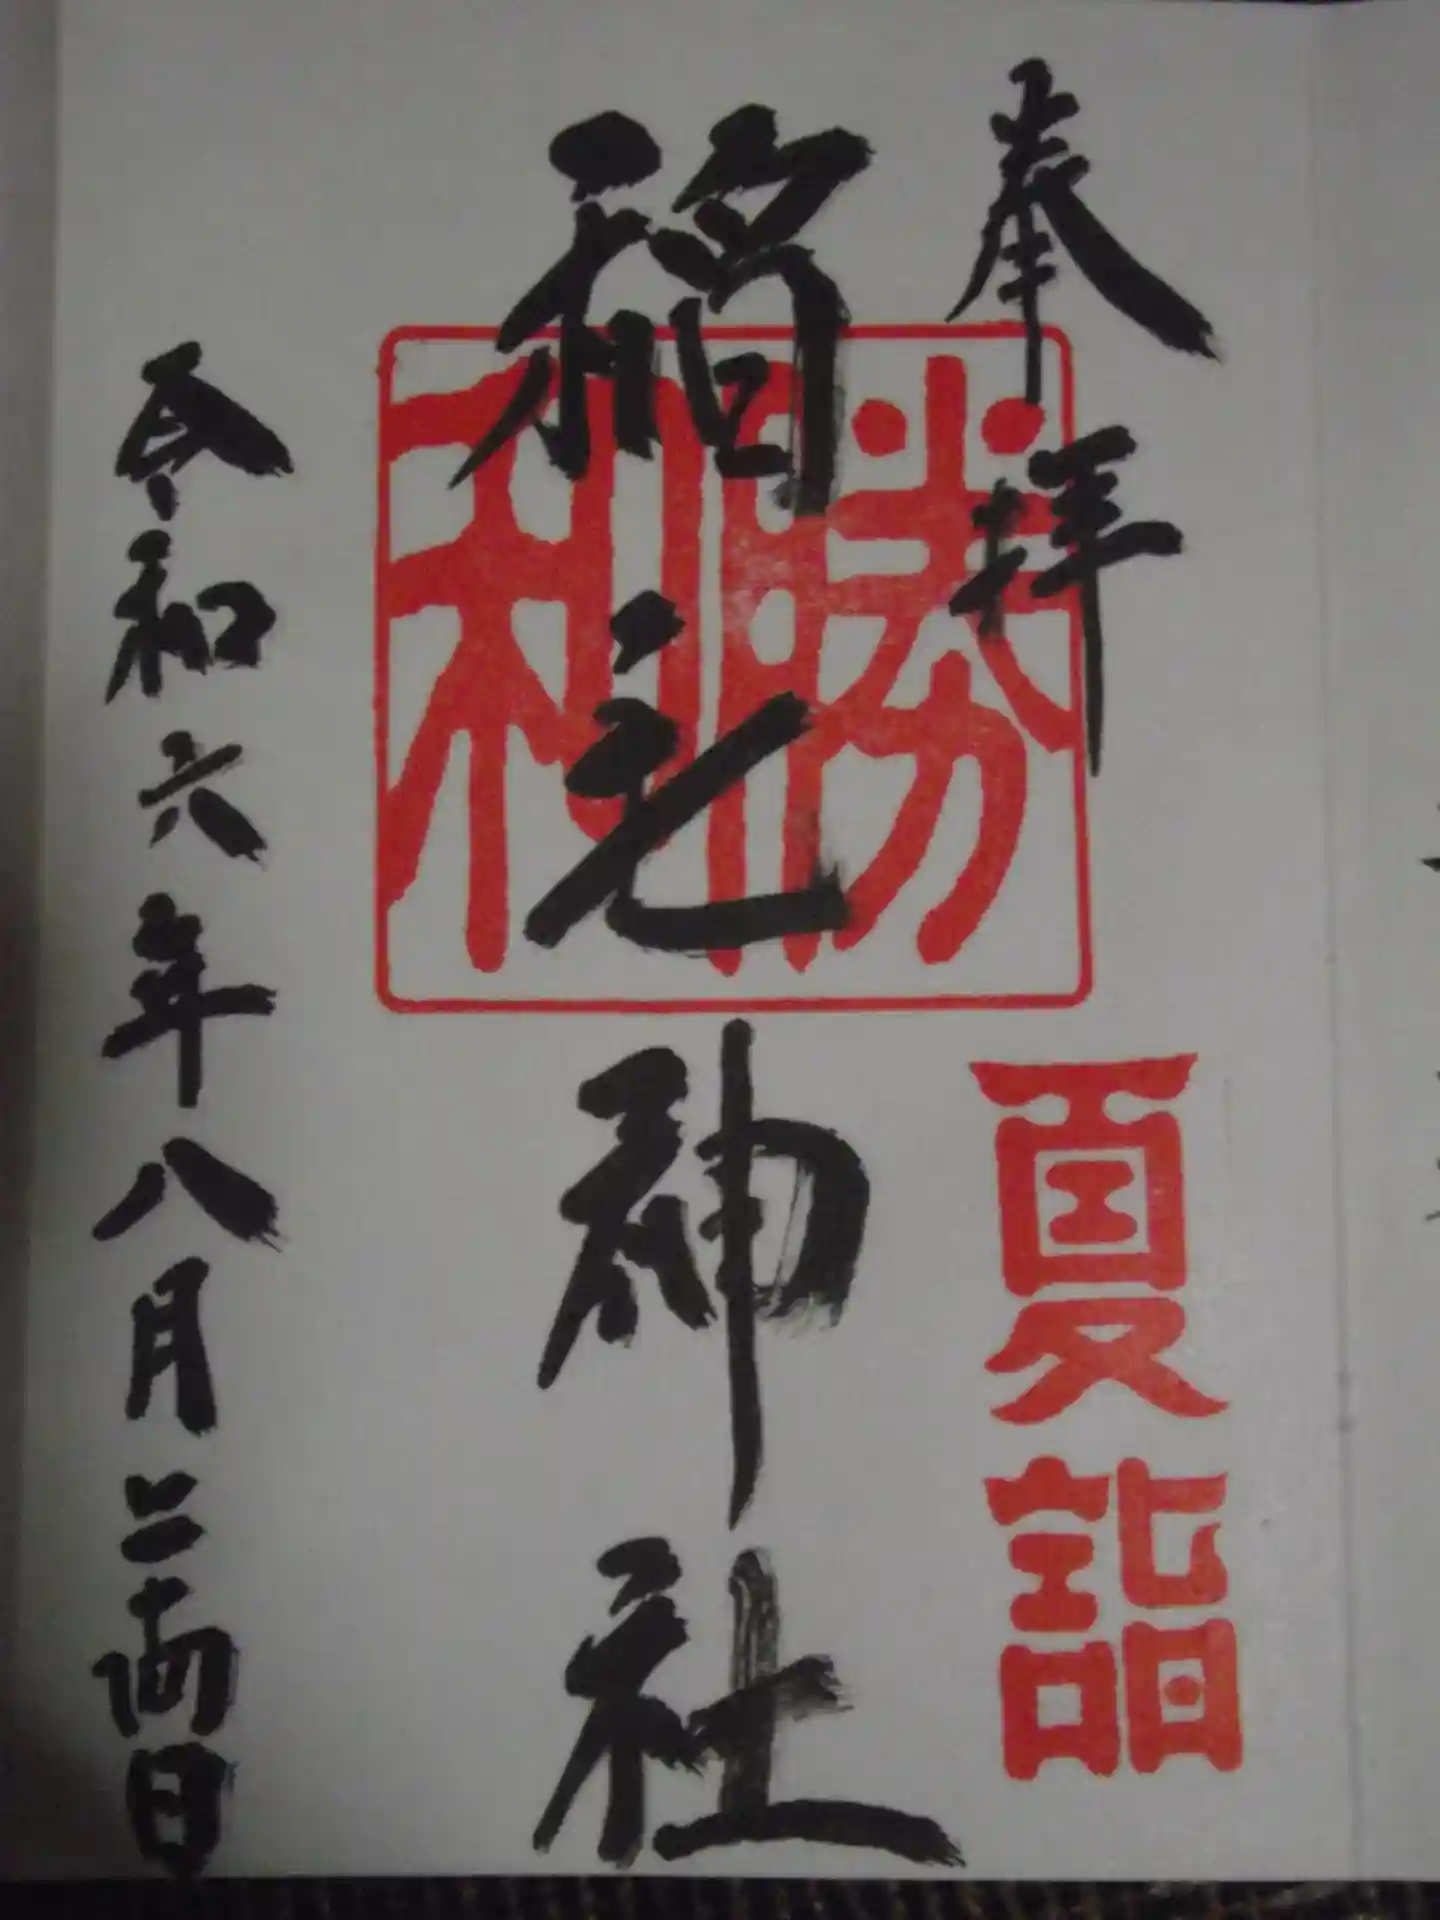 奉拝
夏詣
勝利
稲毛神社
令和六年八月二十四日